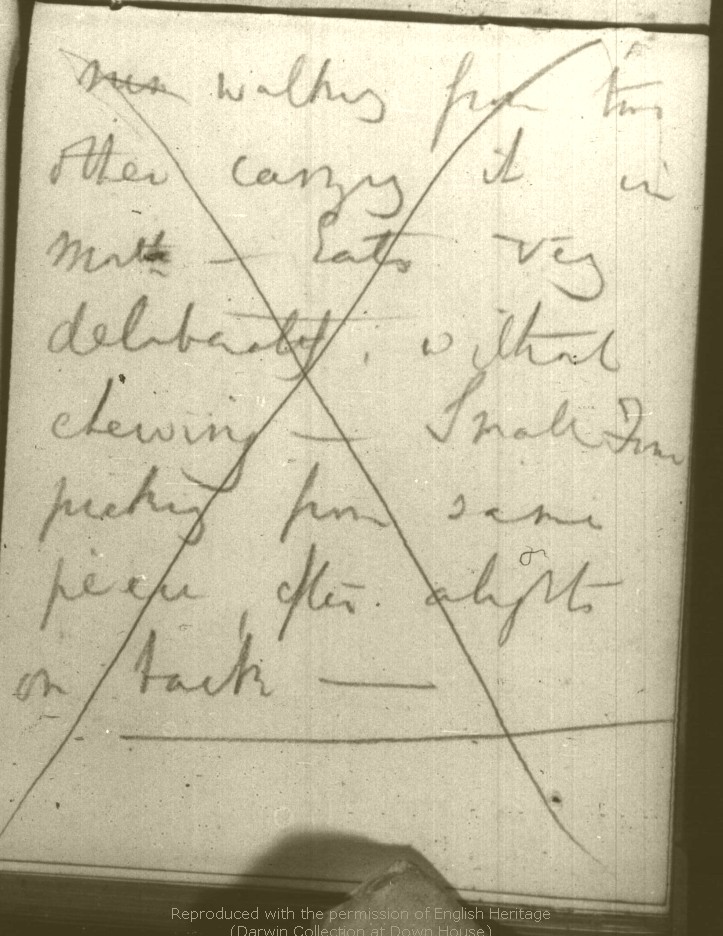 men walking from two
other carrying it in
mouth — Eats very
deliberately, without
chewing — Small Finch
picking from same
piece, after alights
on back —
Reproduced with the permission of English Heritage
(Darwin Collection at Down House)